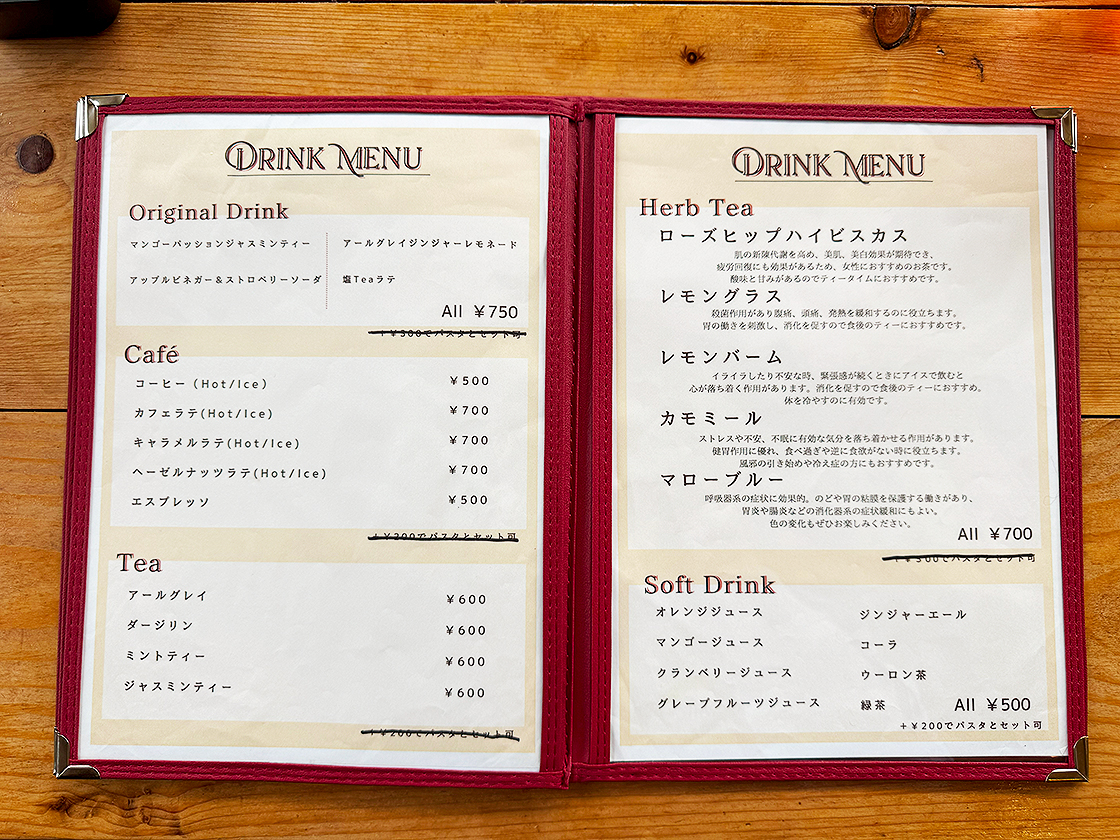 DRINK MENU
Original Drink
マンゴーパッションジャスミンティー
アールグレイジンジャーレモネード
アップルビネガー&ストロベリーソーダ
塩Teaラテ
All ¥750
+¥300でパスタとセット可
Café
コーヒー (Hot/Ice) ¥500
カフェラテ(Hot/Ice) ¥700
キャラメルラテ(Hot/Ice) ¥700
ヘーゼルナッツラテ(Hot/Ice) ¥700
エスプレッソ ¥500
+¥200でパスタとセット可
Tea
アールグレイ ¥600
ダージリン ¥600
ミントティー ¥600
ジャスミンティー ¥600
+¥200でパスタとセット可
DRINK MENU
Herb Tea
ローズヒップハイビスカス
肌の新陳代謝を高め、美肌、美白効果が期待でき、
疲労回復にも効果があるため、女性におすすめのお茶です。
酸味と甘みがあるのでティータイムにおすすめです。
レモングラス
殺菌作用があり腹痛、頭痛、発熱を緩和するのに役立ちます。
胃の働きを刺激し、消化を促すので食後のティーにおすすめです。
レモンバーム
イライラしたり不安な時、緊張感が続くときにアイスで飲むと
心が落ち着く作用があります。消化を促すので食後のティーにおすすめ。
体を冷やすのに有効です。
カモミール
ストレスや不安、不眠に有効な気分を落ち着かせる作用があります。
健胃作用に優れ、食べ過ぎや逆に食欲がない時に役立ちます。
風邪の引き始めや冷え症の方にもおすすめです。
マローブルー
呼吸器系の症状に効果的。のどや胃の粘膜を保護する働きがあり、
胃炎や腸炎などの消化器系の症状緩和にもよい。
色の変化もぜひお楽しみください。
All ¥700
+¥300でパスタとセット可
Soft Drink
オレンジジュース
ジンジャーエール
マンゴージュース
コーラ
クランベリージュース
ウーロン茶
グレープフルーツジュース
緑茶
All ¥500
+¥200でパスタとセット可